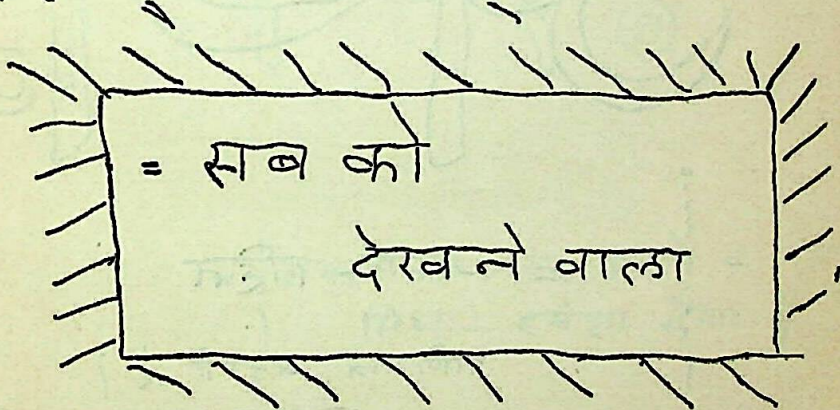 = सब को
देखने वाला